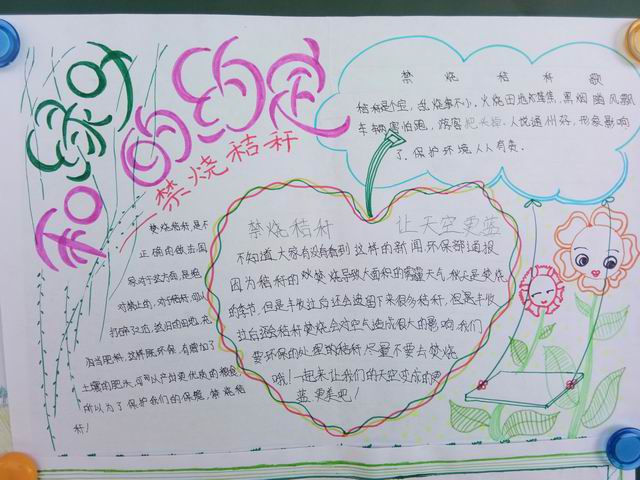 和绿色的约定
—禁烧秸秆
禁 烧 秸 秆 歌
秸秆是个宝,乱烧事不小,火烧田地
黑烟随风飘
车辆害怕跑,旅客把头摇,人说通州好,形象影响
了,保护环境,人人有责。
禁烧秸秆,是不
正确的做法国
家对于这方面,是绝
对禁止的,对于秸秆,可以
打碎了之后,放出的田地,充
当当肥料,这样既环保,有增加了
土壤的肥沃,可以产出更优质的粮食,
所以为了保护我们的保晨,禁烧秸
秆!
禁烧秸秆 让天空更蓝
不知道,大家有没有看到这样的新闻,环保部通报
因为秸秆的焚烧导致大面积的雾霾天气,秋天是焚烧
的季节,但是丰收过后还会遗留下来很多秸秆,但是丰收
过后还会秸秆焚烧会对空气造成很大的影响,我们
要环保的处理的秸秆,尽量不要去焚烧
哦!一起来让我们的天空变成的更
蓝更美吧!